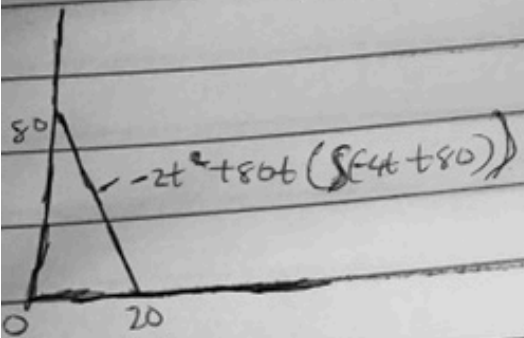 80
-2t²+80t (∫(-4t+80))
0
20